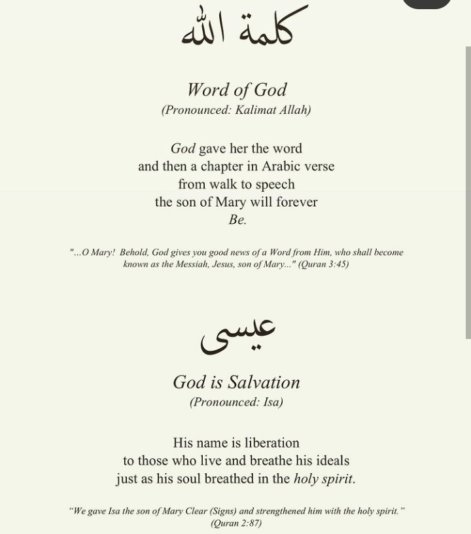 كلمة الله
Word of God
(Pronounced: Kalimat Allah)
God gave her the word
and then a chapter in Arabic verse
from walk to speech
the son of Mary will forever
Be.
"...O Mary!  Behold, God gives you good news of a Word from Him, who shall become
known as the Messiah, Jesus, son of Mary..." (Quran 3:45)
عيسى
God is Salvation
(Pronounced: Isa)
His name is liberation
to those who live and breathe his ideals
just as his soul breathed in the holy spirit.
"We gave Isa the son of Mary Clear (Signs) and strengthened him with the holy spirit."
(Quran 2:87)